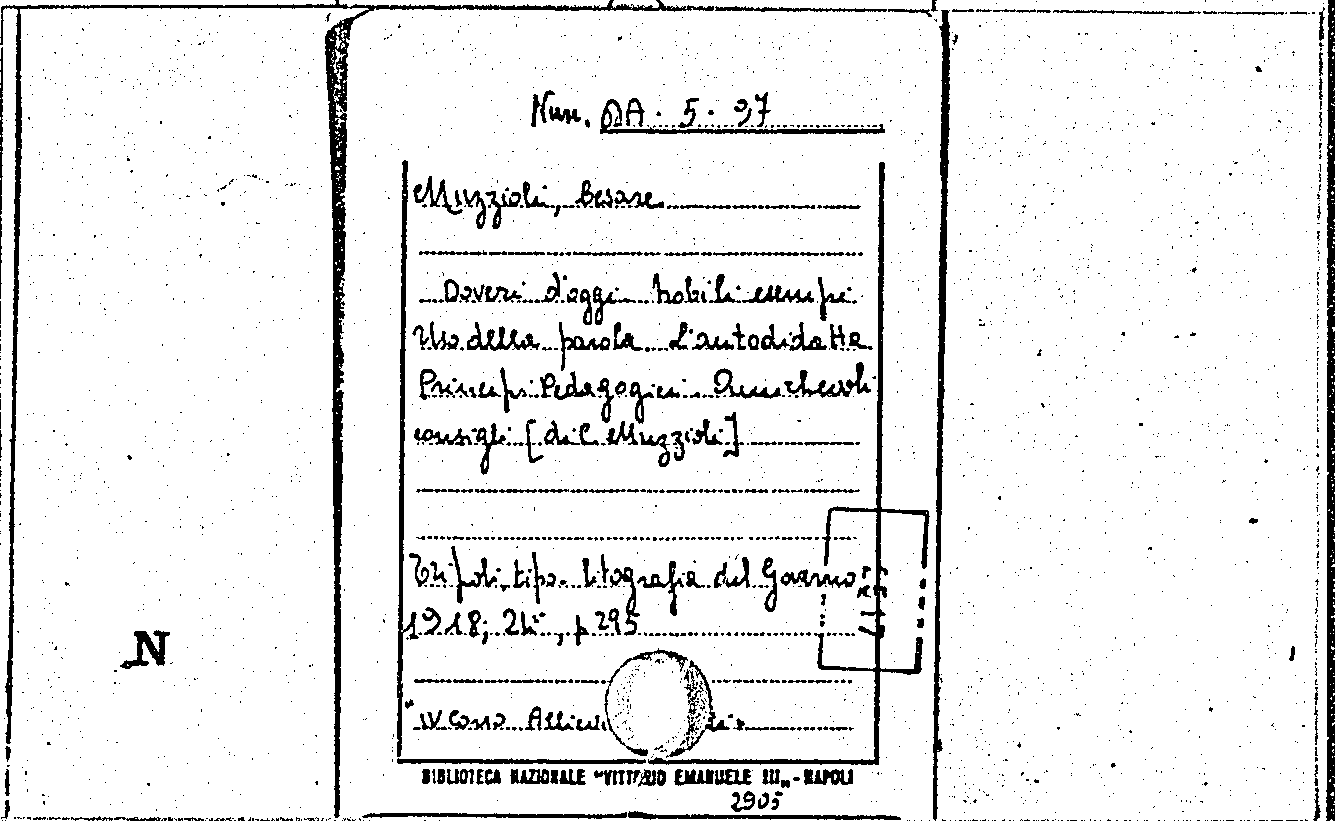 Num. AA. 5. 97
Muzzioli, Cesare.
Doveri d'oggi. Nobili esempi
Uso della parola. L'autodidatta
Principi Pedagogici. Amichevoli
consigli [di C. Muzzioli]
Tripoli, tipo. litografia del Governo
1918; 24°, p 295
N
"IV Corso Allievi
BIBLIOTECA NAZIONALE "VITTORIO EMANUELE III„ - NAPOLI
2905